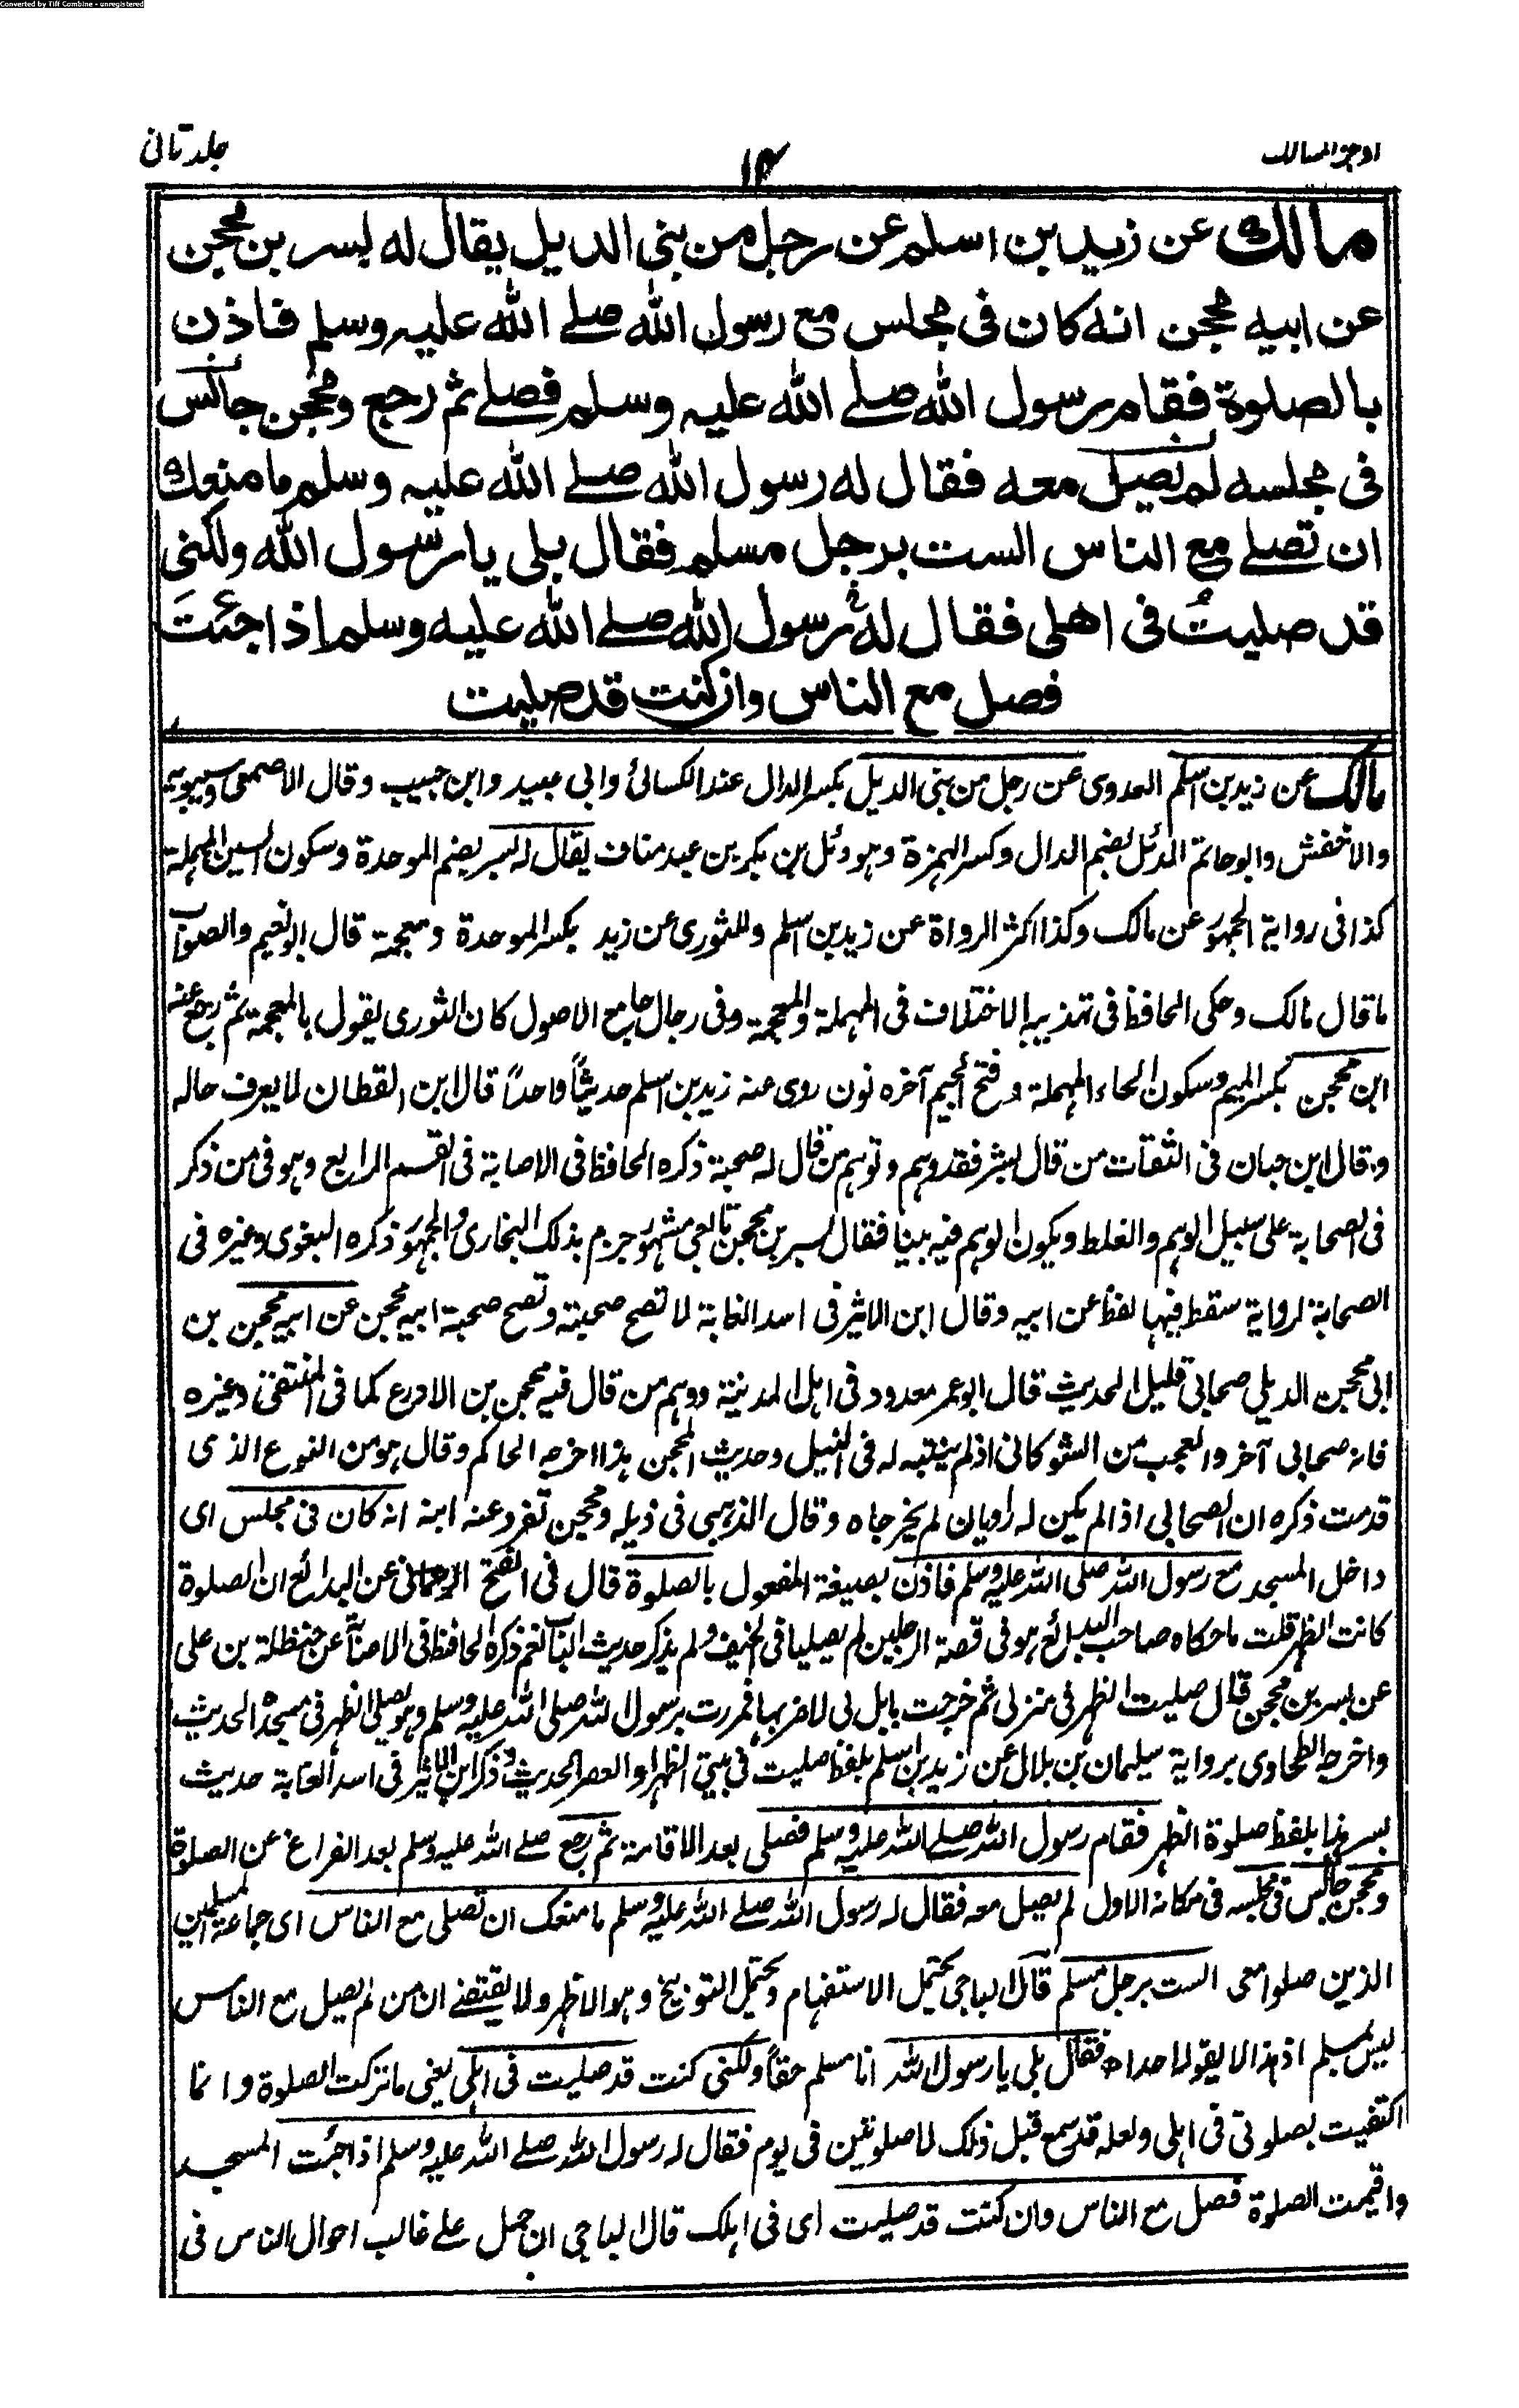 Converted by Tiff Combine - unregistered
اوجز المسالك
١٤
جلد ثانی
مالك عن زيد بن اسلم عن رجل من بني الديل يقال له بسر بن محجن
عن ابيه محجن انه كان في مجلس مع رسول الله صلے الله عليه وسلم فاذن
بالصلوة فقام رسول الله صلے الله عليه وسلم فصلے ثم رجع ومحجن جالس
في مجلسه لم يصل معه فقال له رسول الله صلے الله عليه وسلم ما منعك
ان تصلے مع الناس الست برجل مسلم فقال بلى يا رسول الله ولكني
قد صليت في اهلي فقال له رسول الله صلے الله عليه وسلم اذا جئت
فصل مع الناس وان كنت قد صليت
مالك عن زيد بن اسلم العدوى عن رجل من بني الديل بكسر الدال عند الكسائي وابي عبيد وابن حبيب وقال الاصمعي وسيبويه
والاخفش وابو حاتم الدئل بضم الدال وكسر الهمزة وهو دئل بن بكر بن عبد مناف يقال له بسر بضم الموحدة وسكون السين المهملة
كذا في رواية الجمهور عن مالك وكذا اكثر الرواة عن زيد بن اسلم وللثورى عن زيد بكسر الموحدة ومعجمة قال ابو نعيم والصواب
ما قال مالك وحكى الحافظ في تهذيبه الاختلاف في المهملة والمعجمة وفي رجال جامع الاصول كان الثورى يقول بالمعجمة ثم رجع عنه
ابن محجن بكسر الميم وسكون الحاء المهملة وفتح الجيم آخره نون روى عنه زيد بن اسلم حديثاً واحداً قال ابن القطان لا يعرف حاله
وقال ابن حبان في الثقات من قال بشر فقد وهم وتوهم من قال له صحبة ذكره الحافظ في الاصابة في القسم الرابع وهو في من ذكر
في الصحابة على سبيل الوهم والغلط ويكون الوهم فيه بينا فقال بسر بن محجن تابعي مشهور جزم بذلك البخارى والجمهور ذكره البغوى وغيره في
الصحابة لرواية سقط فيها لفظ عن ابيه وقال ابن الاثير في اسد الغابة لا تصح صحبته وتصح صحبة ابيه محجن عن ابيه محجن بن
ابي محجن الديلي صحابي قليل الحديث قال ابو عمر معدود في اهل المدينة ووهم من قال فيه محجن بن الادرع كما في المنتقى وغيره
فانه صحابي آخر والعجب من الشوكاني اذ لم يتنبه له في النيل وحديث المحجن هذا اخرجه الحاكم وقال هو من النوع الذى
قدمت ذكره ان الصحابي اذا لم يكن له راويان لم يخرجاه وقال الذهبي في ذيله ومحجن تفرد عنه ابنه انه كان في مجلس اى
داخل المسجد مع رسول الله صلى الله عليه وسلم فاذن بصيغة المفعول بالصلوة قال في الفتح الرحماني عن البدائع ان الصلوة
كانت الظهر قلت ما حكاه صاحب البدائع هو في قصة الرجلين لم يصليا في الخيف ولم يذكر حديث الباب نعم ذكره الحافظ في الاصابة عن حنظلة بن علي
عن بسر بن محجن قال صليت الظهر في منزلي ثم خرجت بابل لي لاضربها فمررت برسول الله صلى الله عليه وسلم وهو يصلي الظهر في مسجده الحديث
واخرجه الطحاوى برواية سليمان بن بلال عن زيد بن اسلم بلفظ صليت في بيتي الظهر او العصر الحديث وذكر ابن الاثير في اسد الغابة حديث
بسر هذا بلفظ صلوة الظهر فقام رسول الله صلے الله عليه وسلم فصلى بعد الاقامة ثم رجع صلے الله عليه وسلم بعد الفراغ عن الصلوة
ومحجن جالس في مجلسه في مكانه الاول لم يصل معه فقال له رسول الله صلے الله عليه وسلم ما منعك ان تصلى مع الناس اى جماعة المسلمين
الذين صلوا معي الست برجل مسلم قال الباجي يحتمل الاستفهام ويحتمل التوبيخ وهو الاظهر ولا يقتضے ان من لم يصل مع الناس
ليس بمسلم اذ هذا لا يقوله احد اه فقال بلى يا رسول الله انا مسلم حقاً ولكني كنت قد صليت في اهلي يعني ما تركت الصلوة وانما
اكتفيت بصلوتي في اهلي ولعله قد سمع قبل ذلك لا صلوتين في يوم فقال له رسول الله صلے الله عليه وسلم اذا جئت المسجد
واقيمت الصلوة فصل مع الناس وان كنت قد صليت اى في اهلك قال الباجي ان حمل علے غالب احوال الناس في